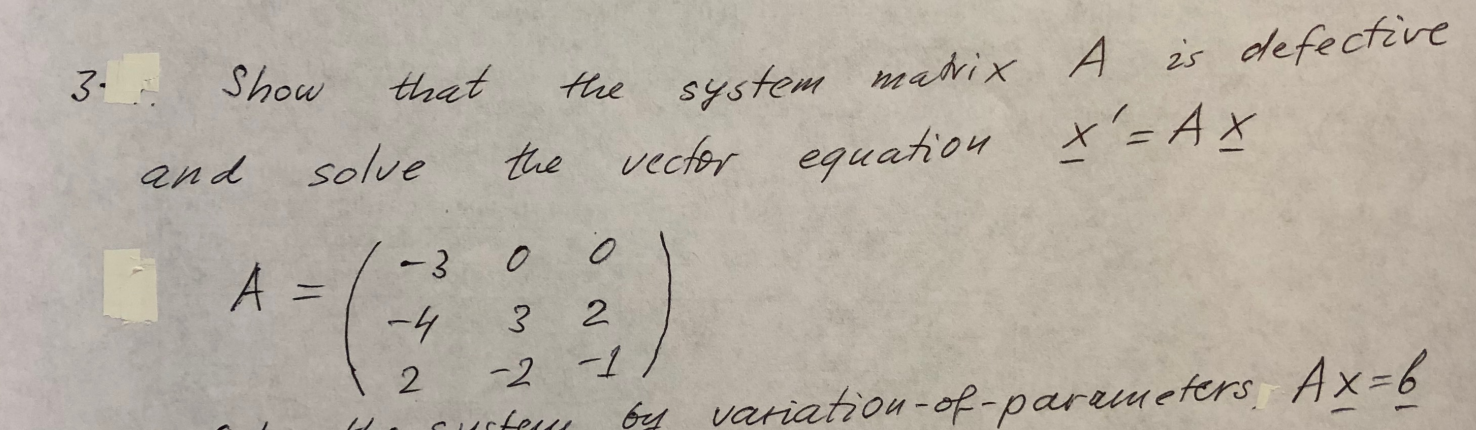 3. Show that the system matrix A is defective
and solve the vector equation x' = A x
A = ( -3 0 0
-4 3 2
2 -2 -1 )
by variation-of-parameters. A x = b